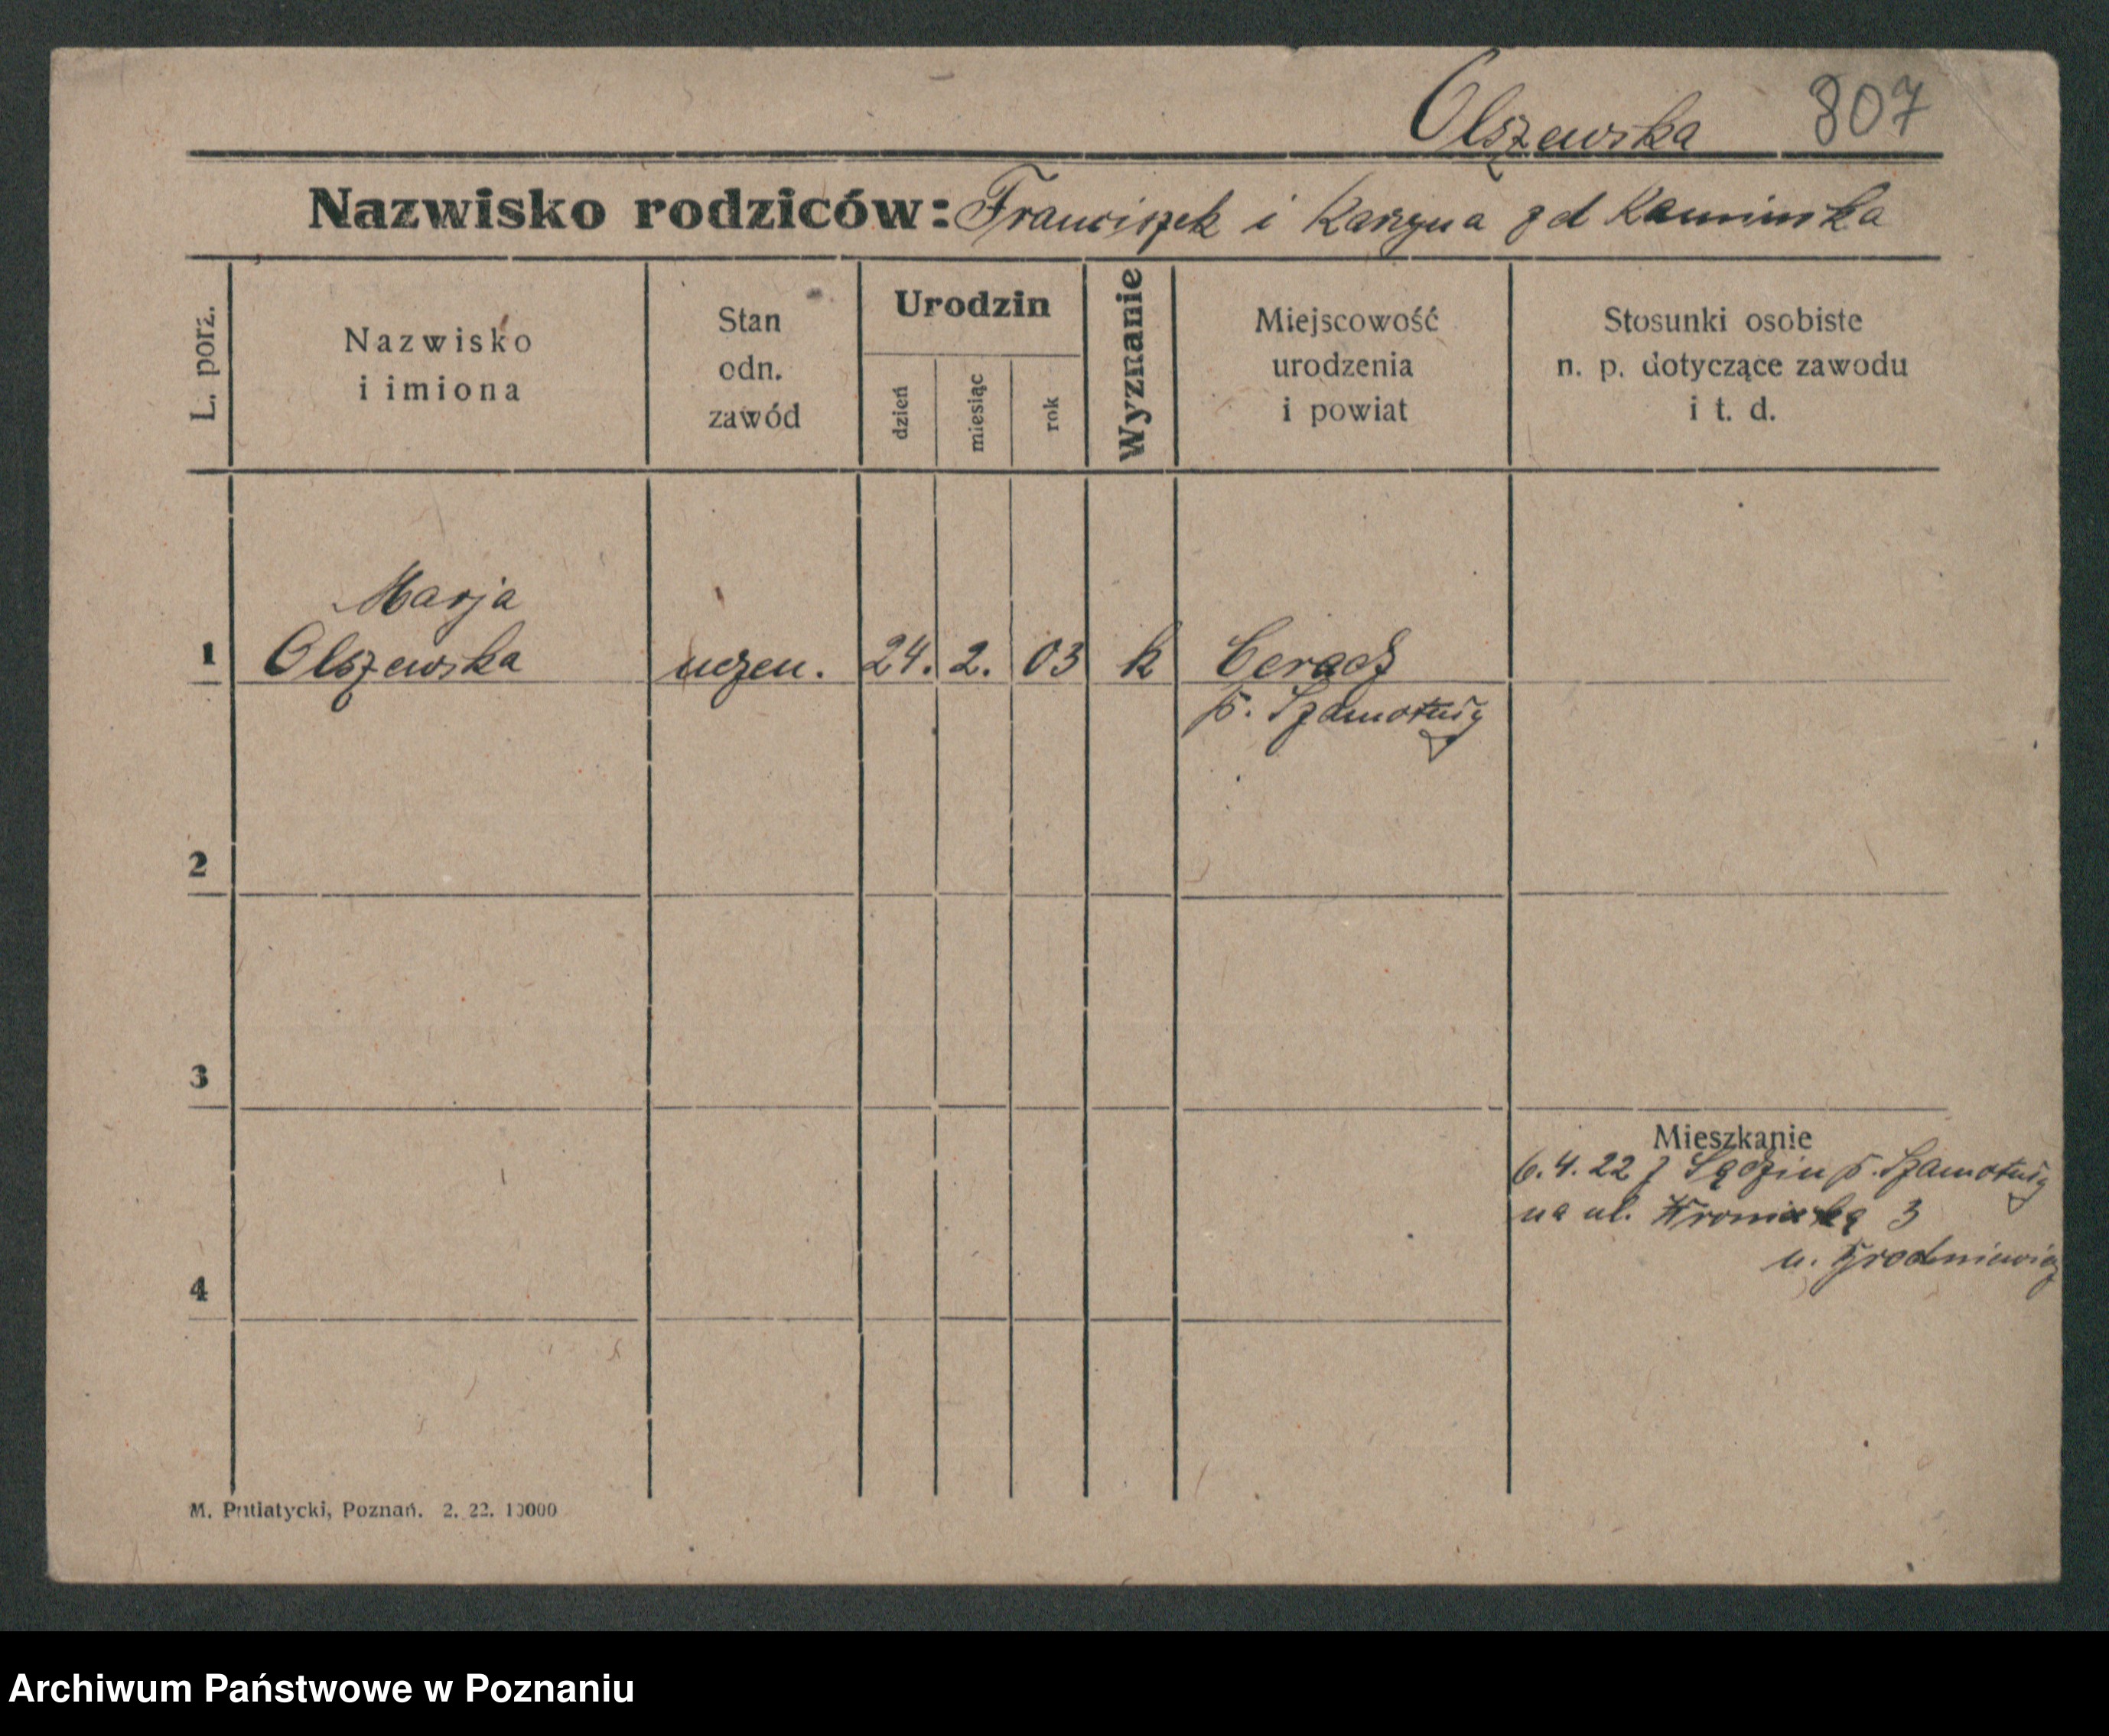 Olszewska 807
Nazwisko rodziców: Franciszek i zd Kaminska
L. porz.
Nazwisko
i imiona
Stan
odn.
zawód
Urodzin
dzień
miesiąc
rok
Wyznanie
Miejscowość
urodzenia
i powiat
Stosunki osobiste
n. p. dotyczące zawodu
i t. d.
Marja
1 Olszewska uczen. 24. 2. 03 k Ceradz
p. Szamotuły
2
3
Mieszkanie
6.4.22 z Sędzin p. Szamotuły
na ul. 3
u.
4
M. Putiatycki, Poznań. 2. 22. 10000
Archiwum Państwowe w Poznaniu